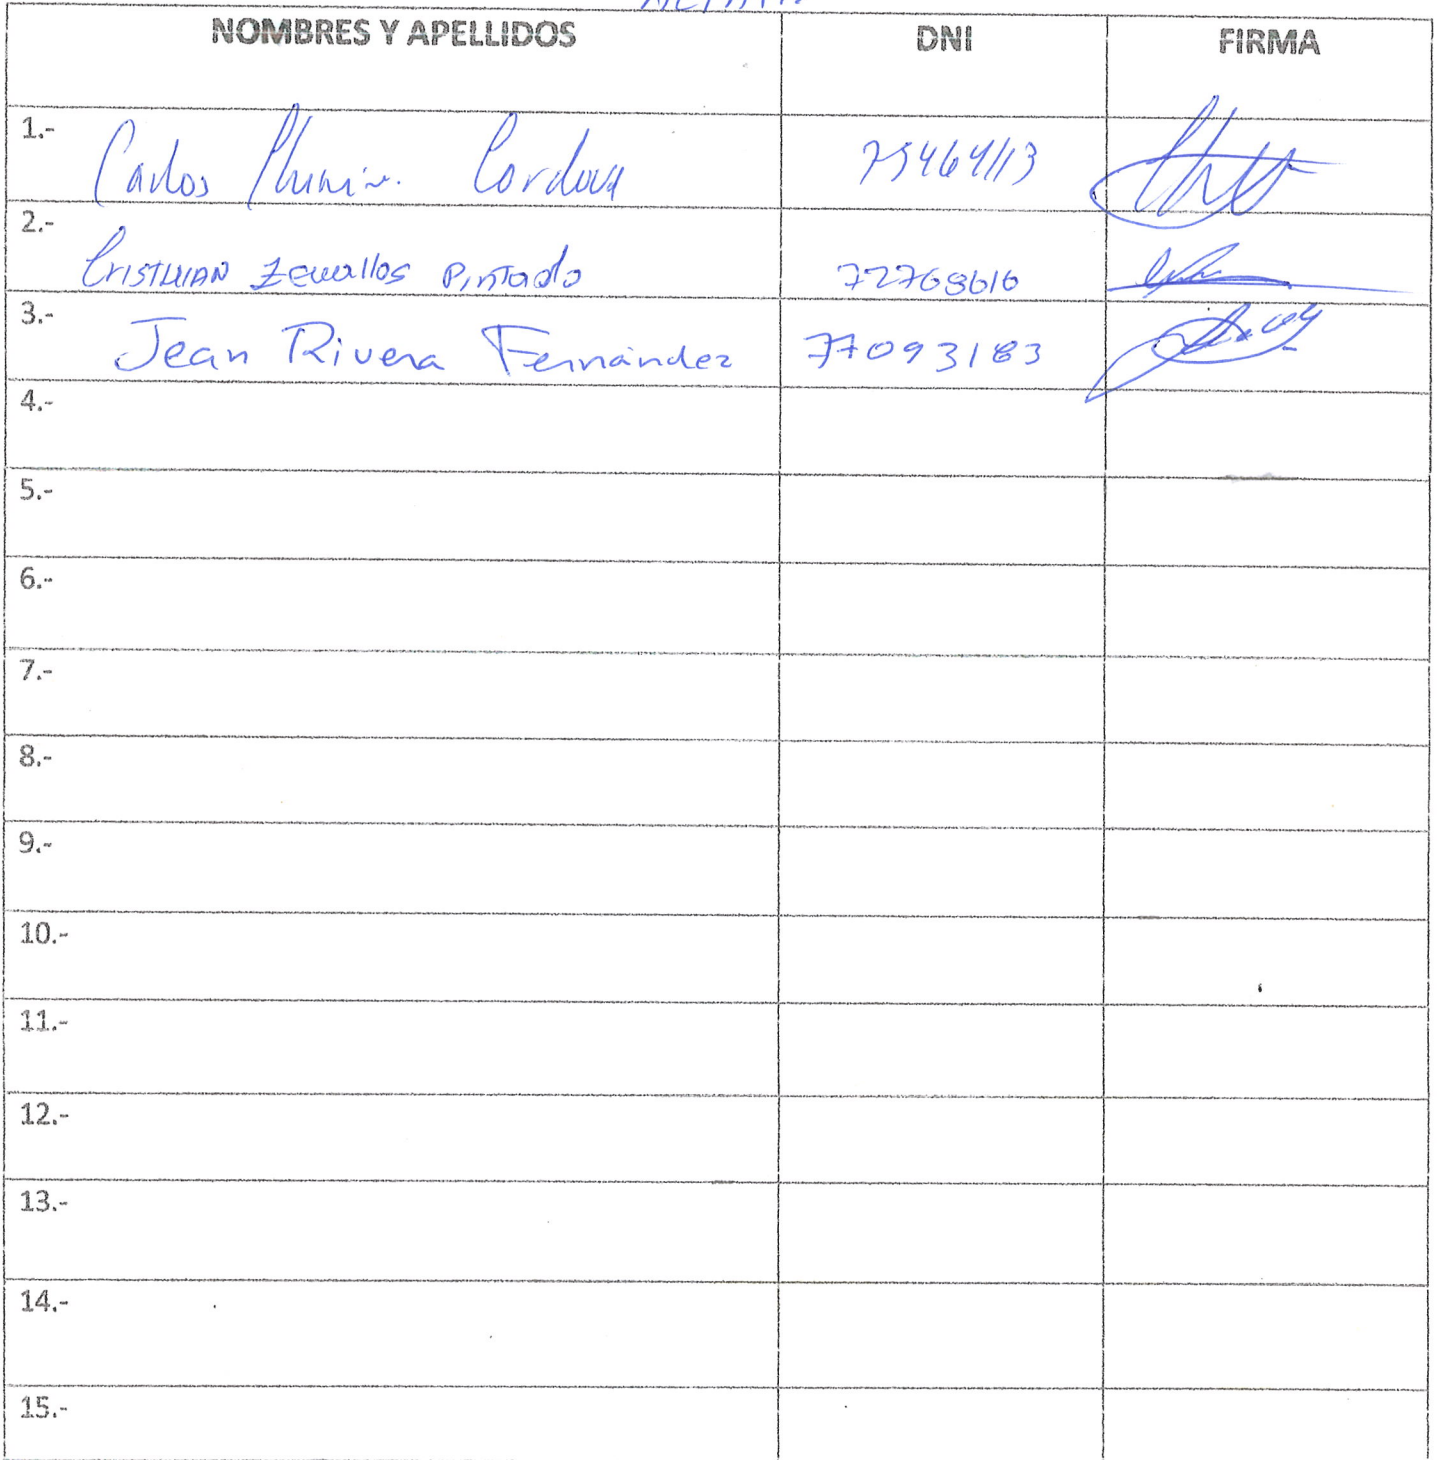 NOMBRES Y APELLIDOS DNI FIRMA
1.- Carlos Cordova
2.- CRISTHIAN Zevallos Pintado 72768616
3.- Jean Rivera Fernández 77093183
4.-
5.-
6.-
7.-
8.-
9.-
10.-
11.-
12.-
13.-
14.-
15.-